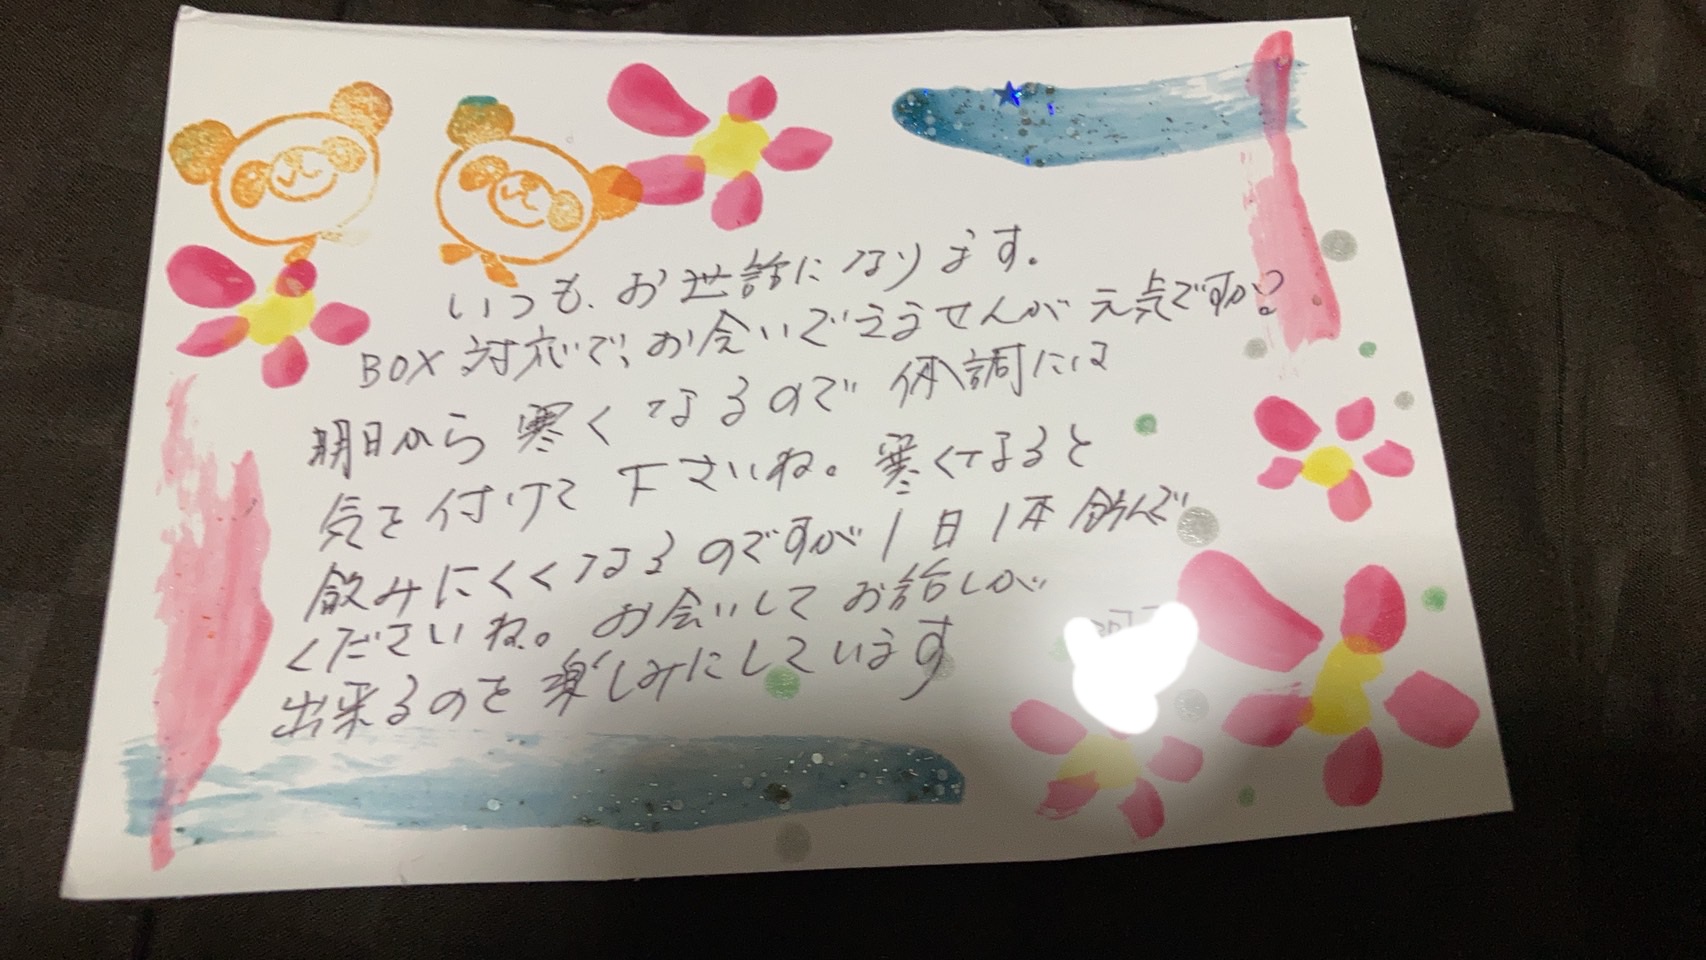 いつも、お世話になります。
BOX対応で、お会いでえませんが元気ですか?
明日から寒くなるので体調には
気を付けて下さいね。寒くなると
飲みにくくなるのですが1日1本飲んで
くださいね。お会いしてお話しが
出来るのを楽しみにしています